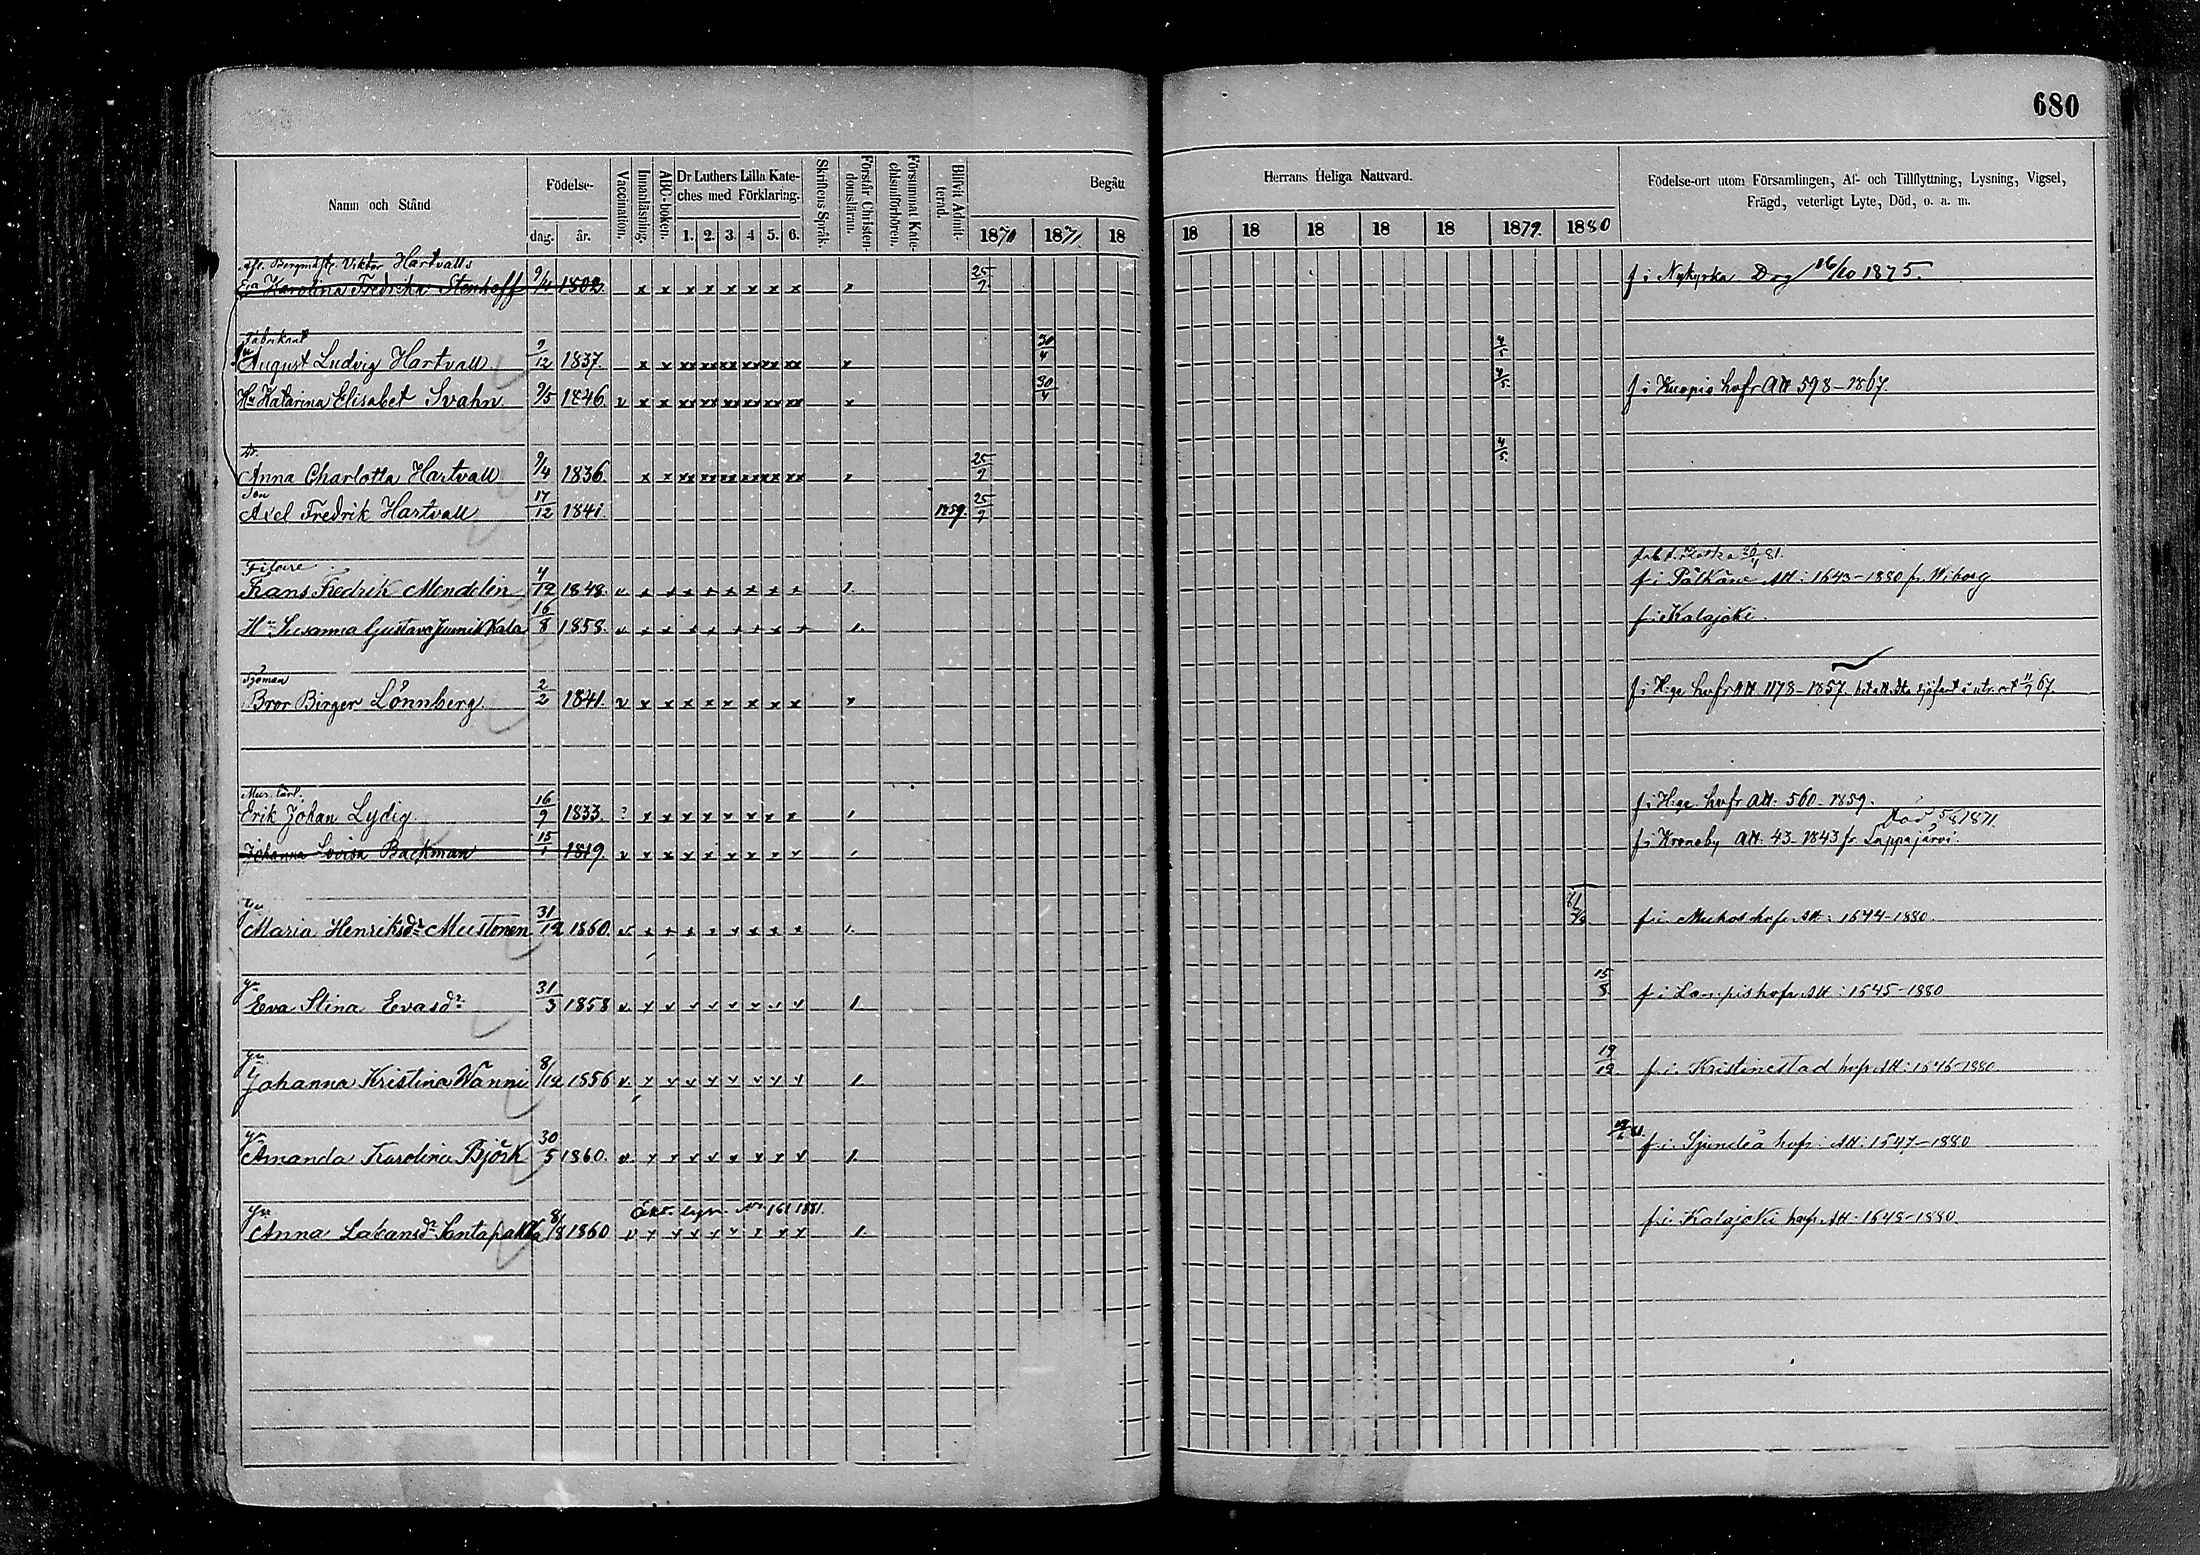 680
Namn och Stånd
Födelse-
dag. år.
Vaccination.
Innanläsning.
ABC-boken.
Dr Luthers Lilla Kate-
ches med Förklaring.
1. 2. 3. 4 5. 6.
Skriftens Språk.
Förstår Christen-
domsläran.
Försummat Kate-
chismiförhören.
Blifvit Admit-
terad.
Begått
1870 1871. 18
Herrans Heliga Nattvard.
18 18 18 18 18 1879. 1880
Födelse-ort utom Församlingen, Af- och Tillflyttning, Lysning, Vigsel,
Frägd, veterligt Lyte, Död, o. a. m.
Viktor Hartvalls
Karolina Fredrika Stenhoff 9/4 1802. x x x x x x x x 25/9 f i Nykyrka Dog 16/10 1875.
Fabrikant
August Ludvig Hartvall 9/12 1837. x x xx xx xx xx xx xx 30/4 4/5
Hu Katarina Elisabet Svahn 9/5 1846. v x x xx xx xx xx xx xx x 30/4 4/5. f i Kuopio hafr Att 598-1867.
Dr.
Anna Charlotta Hartvall 9/4 1836. x x xx xx xx xx xx xx 25/9 4/5.
Son
Axel Fredrik Hartvall 17/12 1841. 1859. 25/9
Filare
Frans Fredrik Mendelin 4/12 1848. v x x x x x x x x 1. f i Pälkäne Att: 1643-1880 fr Wiborg
Hu Susanna Gustava Junnikkala 16/8 1858. v x x x x x x x x 1. f i Kalajoki.
Sjöman
Bror Birger Lönnberg 2/2 1841. v x x x x x x x x f i H:ge hafr Att 1178-1857 67.
Mur. lärl.
Erik Johan Lydig 16/9 1833. ? x x x x x x x x f i H:ge. hafr Att: 560-1859.
Död 5/8 1871.
Johanna Lovisa Backman 15/1 1819. v x x x x x x x x f i Kroneby Att: 43-1843 fr Lappajärvi.
Maria Henriksdr Mustonen 31/12 1860. v x x x x x x x x 1. f i Muhos hafr Att: 1644-1880.
Eva Stina Evasdr 31/3 1858 v x x x x x x x x 1. 15/8 f i Lampis hafr Att: 1645-1880
Johanna Kristina Wänni 8/12 1856 v x x x x x x x x 1. 19/12 f i Kristinestad hafr Att: 1646-1880
Amanda Karolina Björk 30/5 1860. v x x x x x x x x 1. f i Sjundeå hafr: Att: 1647-1880
No 161 1881.
Anna Labansdr Santapakka 8/8 1860 v x x x x x x x x 1. f i Kalajoki hafr Att: 1648-1880